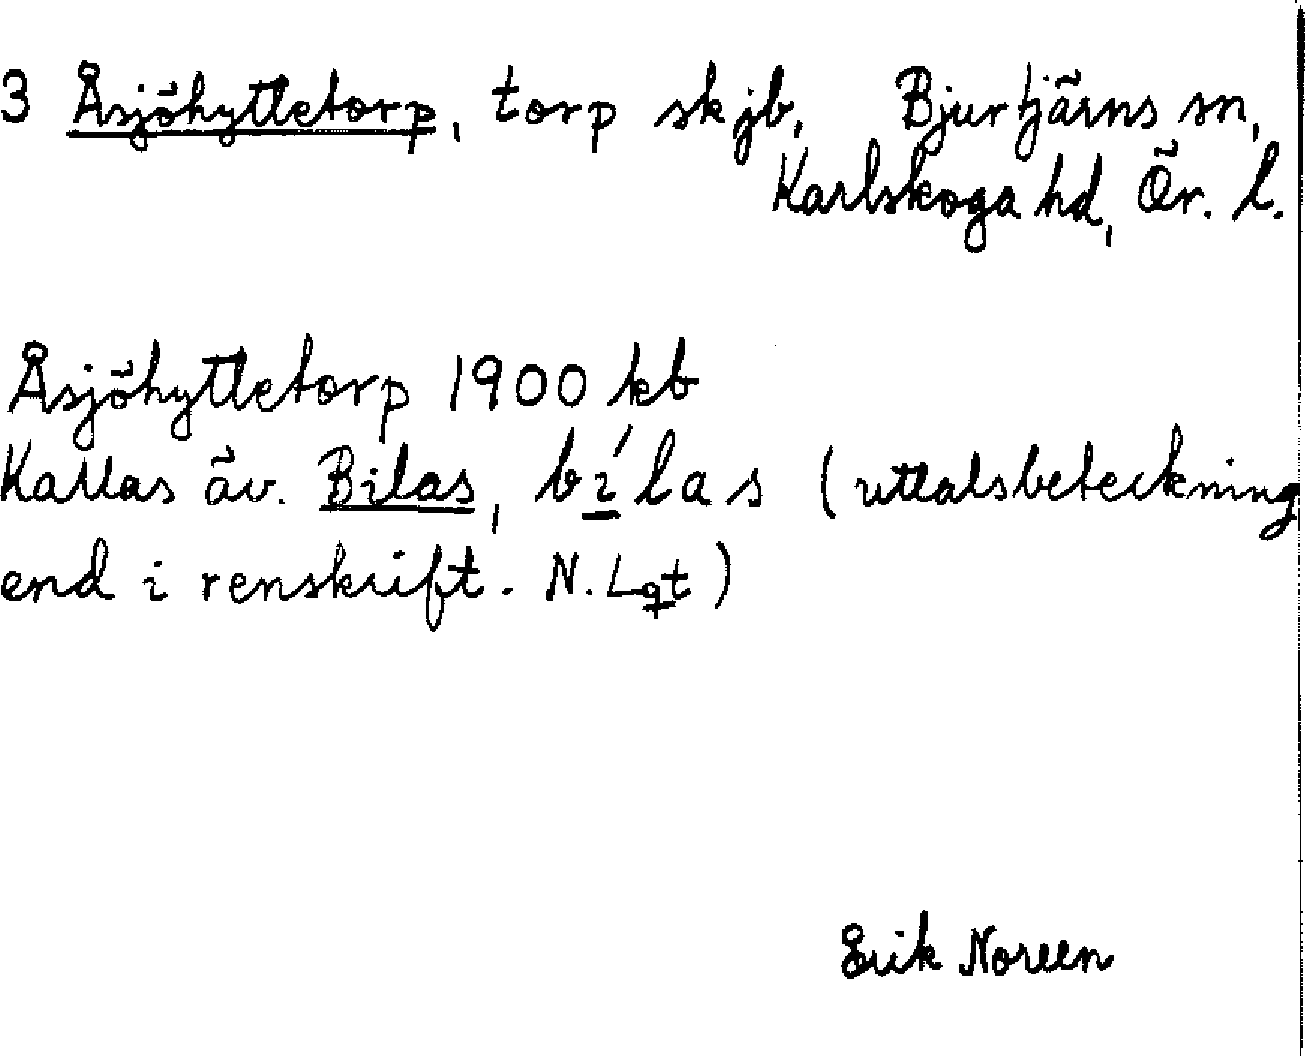 3 Åsjöhyttetorp, torp skjb, Bjurtjärns sn,
Karlskoga hd, Ör. l.
Åsjöhyttetorp 1900 kb
Kallas äv. Bilas, bi´las (uttalsbeteckning
end i renskrift. N. Lqt)
Erik Noreen